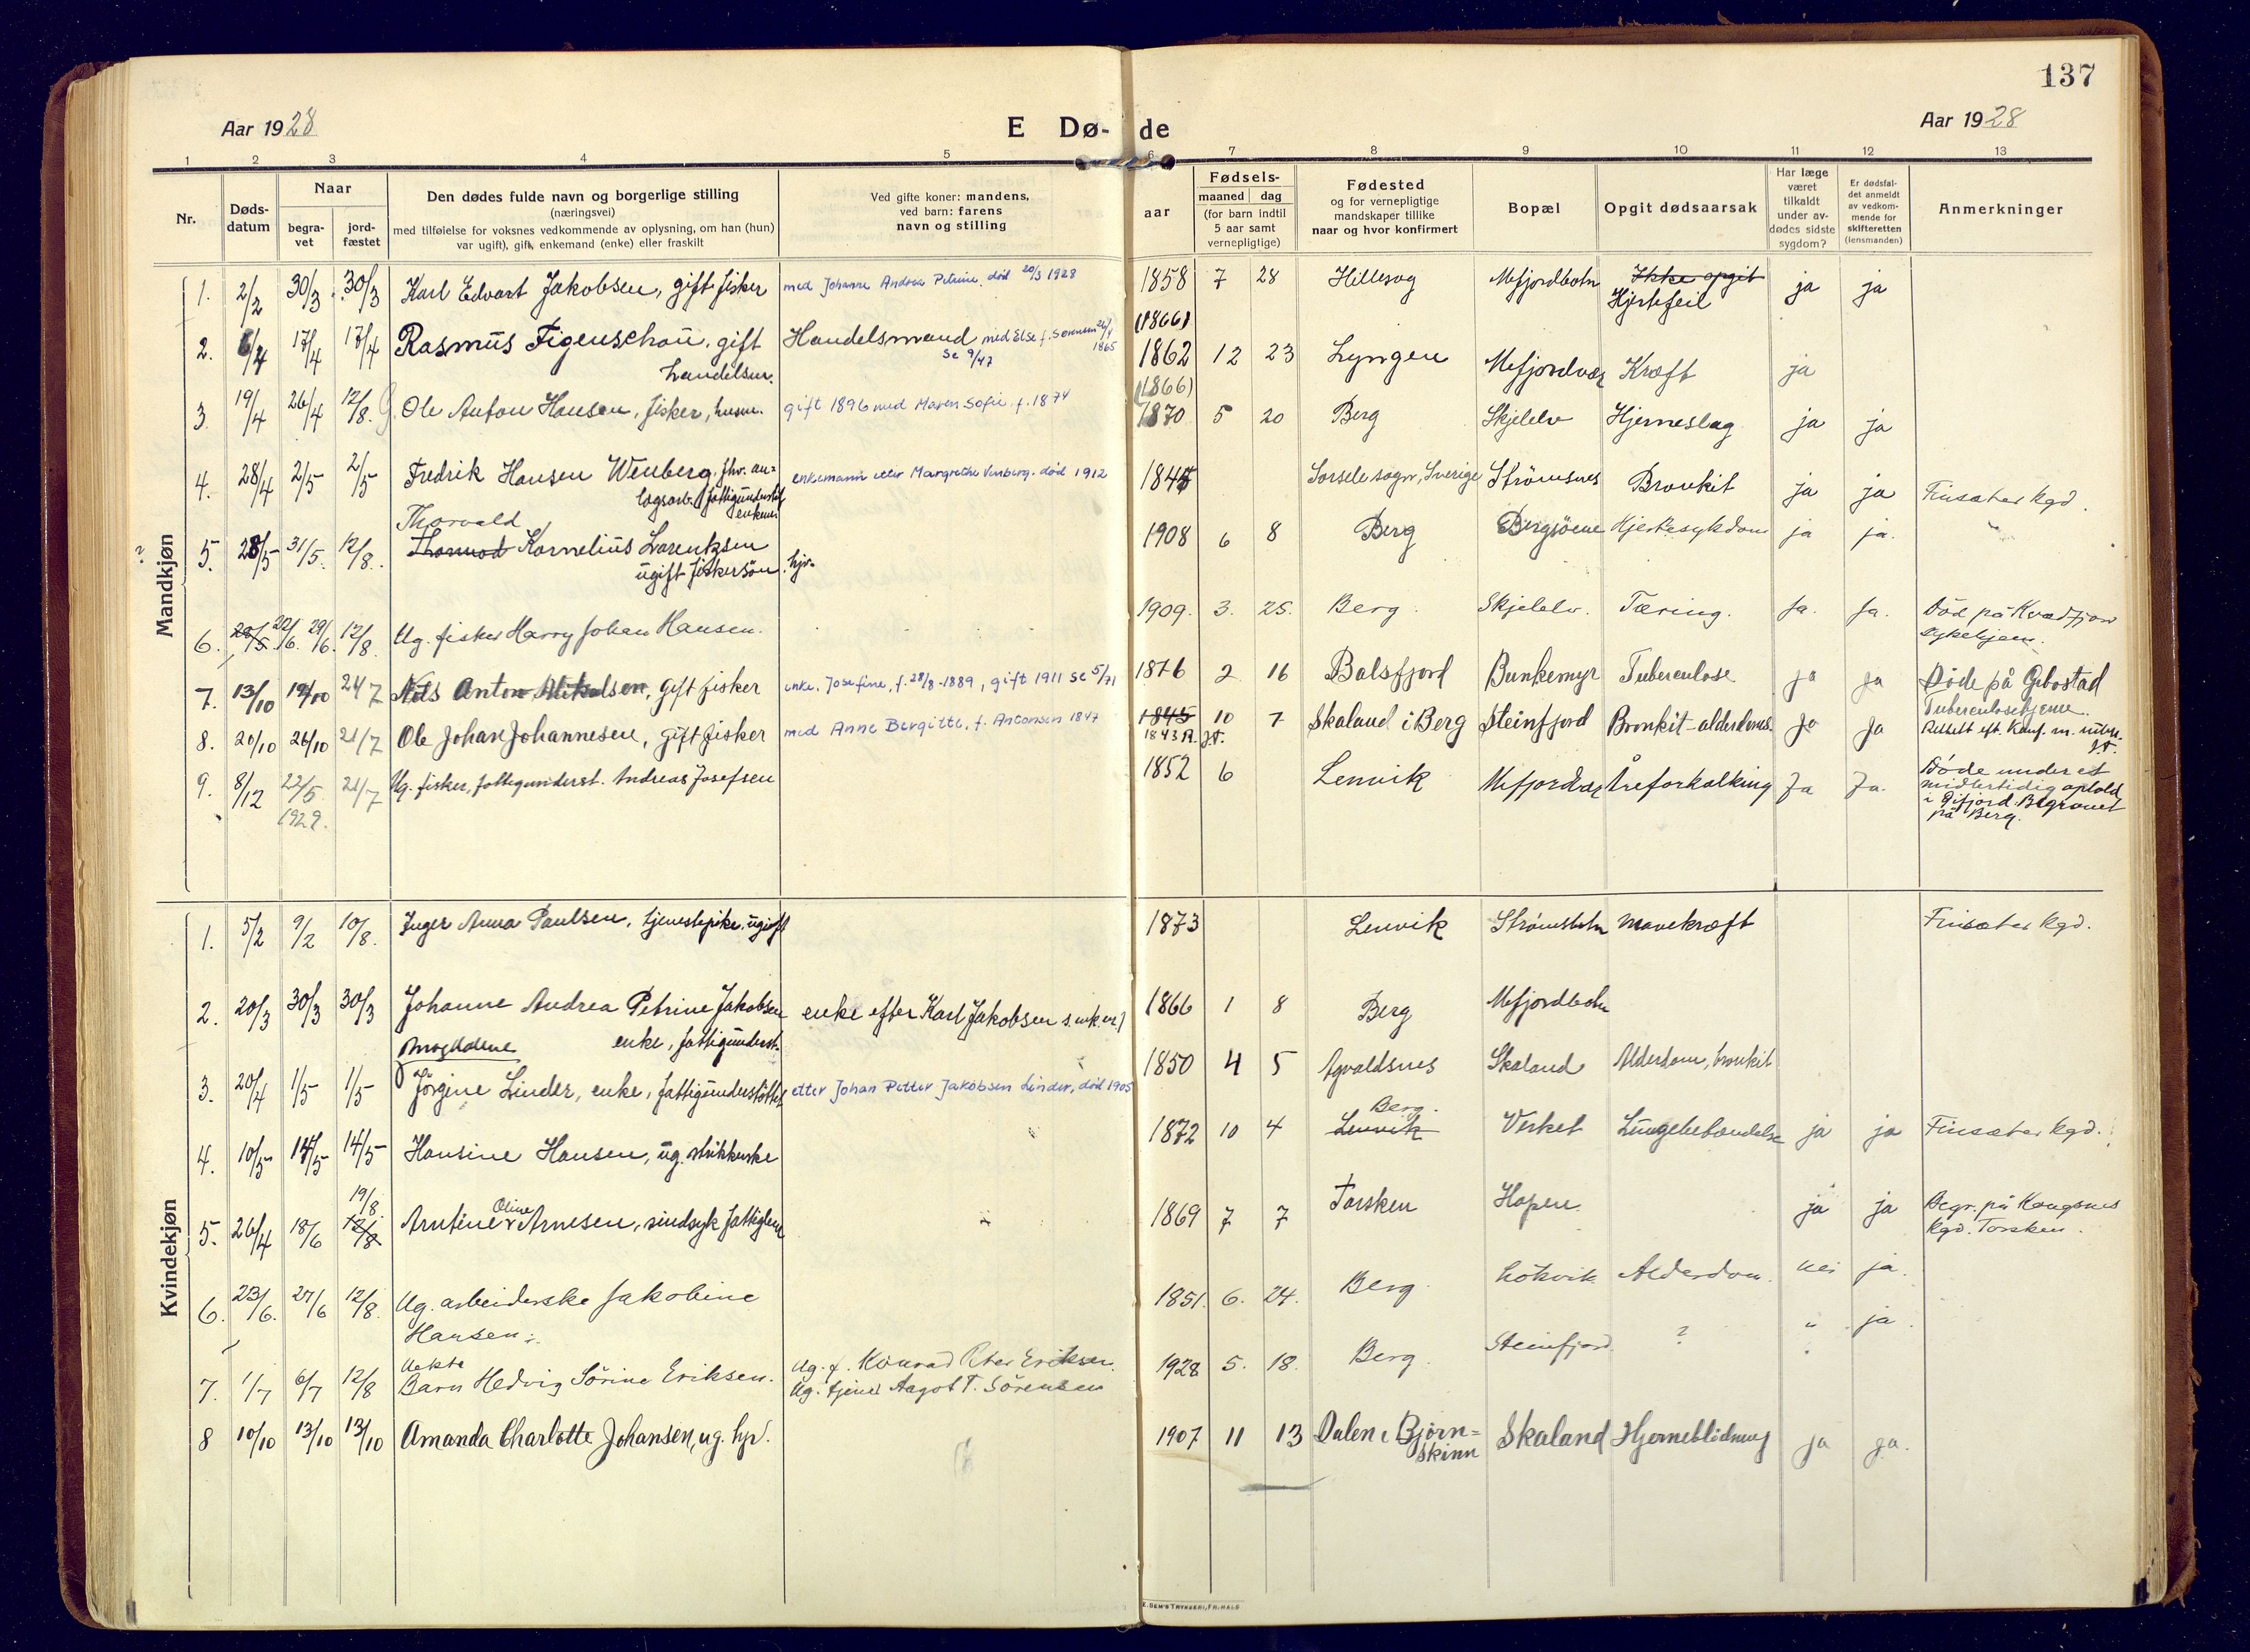 137
Aar 1928
E Dø- de
Aar 1928
1 2 3 4 5 6 7 8 9 10 11 12 13
Nr.
Døds-
datum
Naar
begra-
vet
jord-
fæstet
Den dødes fulde navn og borgerlige stilling
(næringsvei)
med tilføielse for voksnes vedkommende av oplysning, om han (hun)
var ugift), gift, enkemand (enke) eller fraskilt
Ved gifte koner: mandens,
ved barn: farens
navn og stilling
aar
Fødsels-
maaned dag
(for barn indtil
5 aar samt
vernepligtige)
Fødested
og for vernepligtige
mandskaper tillike
naar og hvor konfirmert
Bopæl
Opgit dødsaarsak
Har læge
været
tilkaldt
under av-
dødes sidste
sygdom?
Er dødsfal-
det anmeldt
av vedkom-
mende for
skifteretten
(lensmanden)
Anmerkninger
Mandkjøn
1. 2/2 30/3 30/3 Karl Edvart Jakobsen, gift fisker med Johanne Andrea Petrine, død 20/3 1928 1858 7 28 Hillesøg Mefjordbotn Ikke opgit ja ja
Hjertefeil
(1866)
2. 6/4 17/4 17/4 Rasmus Figenschou, gift Handelsmand med Else f. Sørensen 26/4 1865 1862 12 23 Lyngen Mefjordvær Kræft ja
handelsm. se 9/47
(1866)
3. 19/4 26/4 12/8. Ole Anton Hansen, fisker, husm. gift 1896 med Maren Sofie f. 1874 1870 5 20 Berg Skjelelv Hjerneslag ja ja
4. 28/4 2/5 2/5 Fredrik Hansen Wenberg, fhv. an= enkemann etter Margrethe Venberg. død 1912 1844 Sorsele sogn, Sverige Strømsnes Bronkit ja ja Finsæter kgd.
lægsarb. fattigunderstøt
enkem.
Thorvald
5. 28/5 31/5. 12/8. Thormod Kornelius Lorentzsen 1908 6 8 Berg Bergsøene Hjertesykdom ja ja. "
ugift fiskersøn, hjv.
6. 28/5. 22/6. 29/6. 12/8. Ug. fisker Harry Johan Hansen. 1909. 3. 25. Berg. Skjelelv. Tæring. Ja. Ja. Død på Kvædfjord
sykehjem.
7. 13/10 19/10 24/7 Nils Anton Mikalsen, gift fisker enke. Josefine, f. 28/8-1889, gift 1911 se 5/71 1876 2 16 Balsfjord Bunkemyr Tuberculose ja ja Døde på Gibostad
Tuberculosehjem.
8. 20/10 26/10 21/7 Ole Johan Johannesen, gift fisker med Anne Bergitte, f. Antonsen 1847 1845 10 7 Skaland i Berg Steinfjord Bronkit-alderdoms. Ja Ja
1843
9. 8/12 22/5 21/7 Ug. fisker, fattigunderst. Andreas Josefsen 1852 6 Lenvik Mefjordvær Åreforkalking Ja Ja. Døde under et
1929. midlertidig ophold
i Gifjord. Begravet
på Berg.
Kvindekjøn
1. 5/2 9/2 10/8. Inger Anna Paulsen, tjenestepike, ugift 1873 Lenvik Strømsbotn Mavekræft Finsæter kgd.
2. 20/3 30/3 30/3 Johanne Andrea Petrine Jakobsen enke efter Karl Jakobsen s. mk. nr. 1 1866 1 8 Berg Mefjordbotn
enke, fattigunderst.
Magdalene
3. 20/4 1/5 1/5 Jørgine Linder, enke, fattigunderstøttet etter Johan Petter Jakobsen Linder, død 1905 1850 4 5 Agvaldsnes Skaland Alderdom, bronkit
Berg.
4. 10/5 14/5 14/5 Hansine Hansen, ug. strikkerske 1872 10 4 Lenvik Verket Lungebetændelse ja ja Finsæter kgd.
19/8.
5. 26/4 18/6 12/8 Arntine Oline Arnesen, sindsyk fattiglem " 1869 7 7 Torsken Hopen. ja ja Begr. på Kongsnes
kgd. Torsken.
6. 23/6. 27/6 12/8. Ug. arbeiderske Jakobine 1851. 6. 24. Berg. Løkvik Alderdom. nei ja.
Hansen.
7. 1/7 6/7 12/8 Uekte Ug. f. Konrad Peter Eriksen. 1928 5. 18. Berg. Steinfjord ? " ja.
Barn Hedvig Sörine Eriksen. Ug. tjener Aagot T. Sörensen
8 10/10 13/10 13/10 Amanda Charlotte Johansen, ug. hjv. 1907 11 13 Dalen i Bjørn= Skaland Hjerneblødning ja ja.
skinn